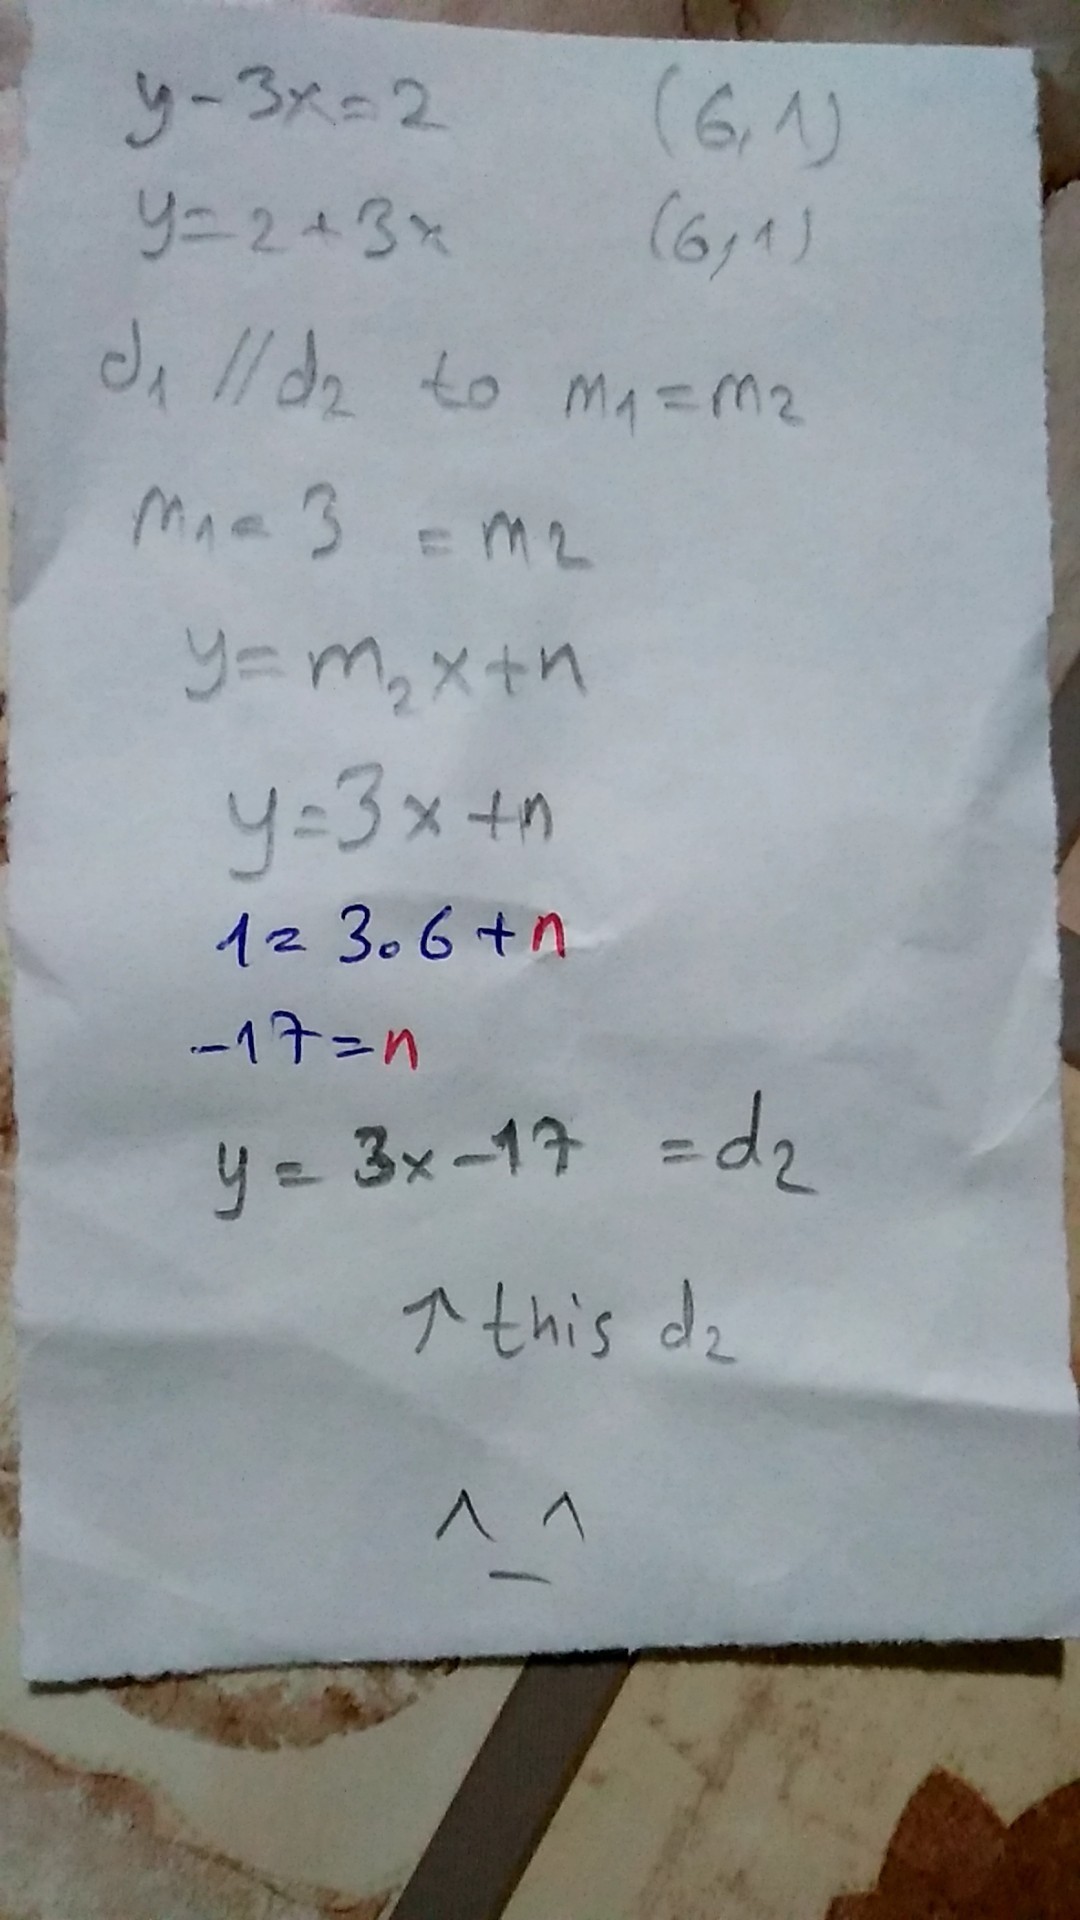 y-3x=2 (6,1)
y=2+3x (6,1)
d₁ // d₂ to m₁=m₂
m₁=3 =m₂
y=m₂x+n
y=3x+n
1=3.6+n
-17=n
y=3x-17 =d₂
↑ this d₂
^_^